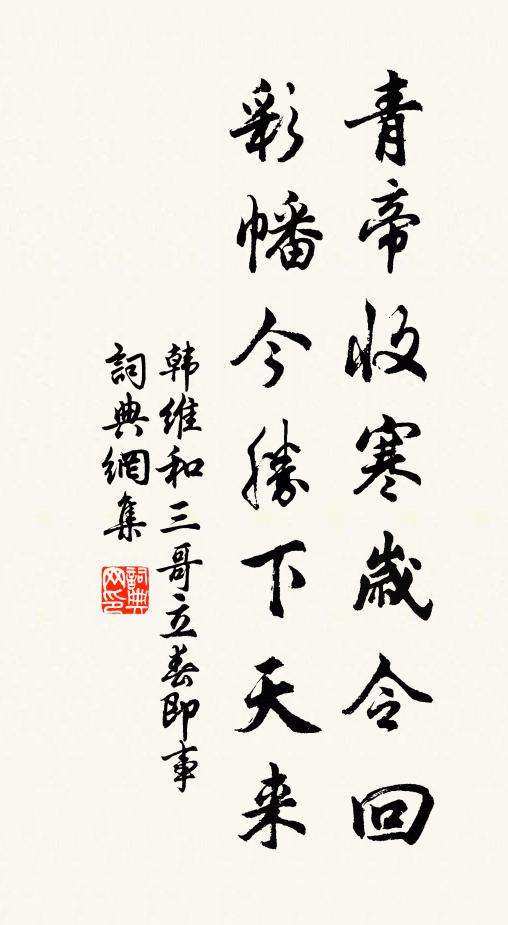 青帝收寒歲令回
彩幡今勝下天来
韩維和三哥立春即事
詞典網集
詞典网印